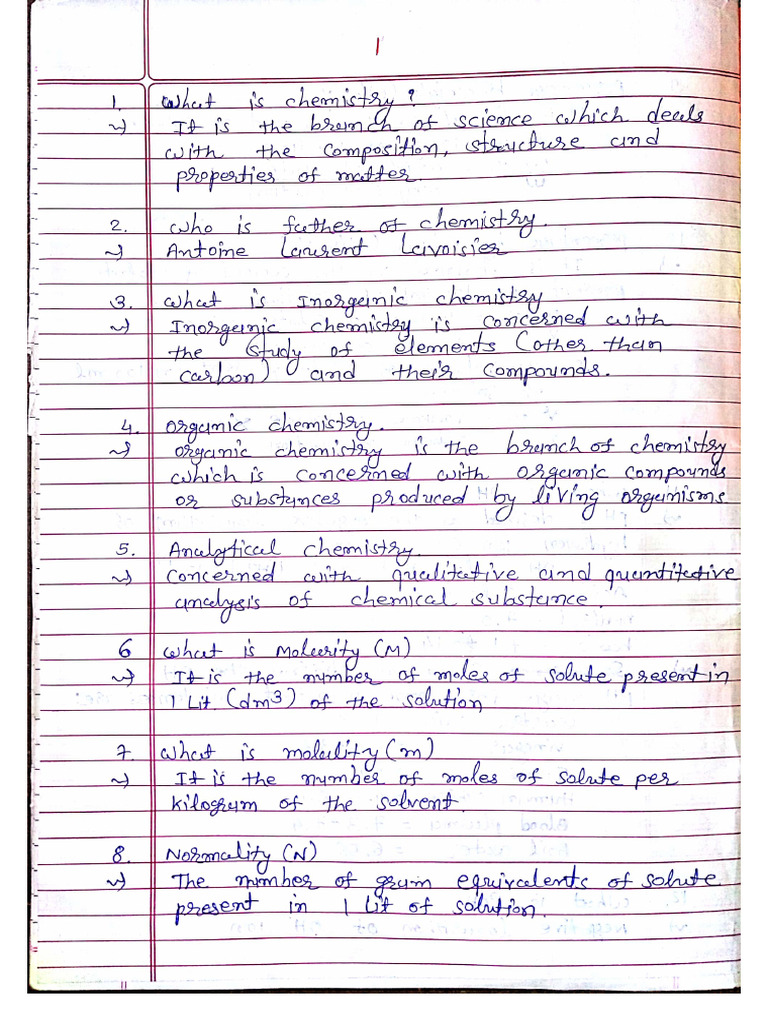 1
1. What is chemistry?
It is the branch of science which deals
with the composition, structure and
properties of matter.
2. who is father of chemistry.
Antoine Laurent Lavoisier
3. What is Inorganic chemistry
Inorganic chemistry is concerned with
the study of elements (other than
carbon) and their compounds.
4. organic chemistry.
organic chemistry is the branch of chemistry
which is concerned with organic compounds
or substances produced by living organisms
5. Analytical chemistry.
concerned with qualitative and quantitative
analysis of chemical substance.
6 What is Molarity (M)
It is the number of moles of solute present in
1 Lit (dm3) of the solution
7. What is molality (m)
It is the number of moles of solute per
kilogram of the solvent.
8. Normality (N)
The number of gram equivalents of solute
present in 1 Lit of solution.